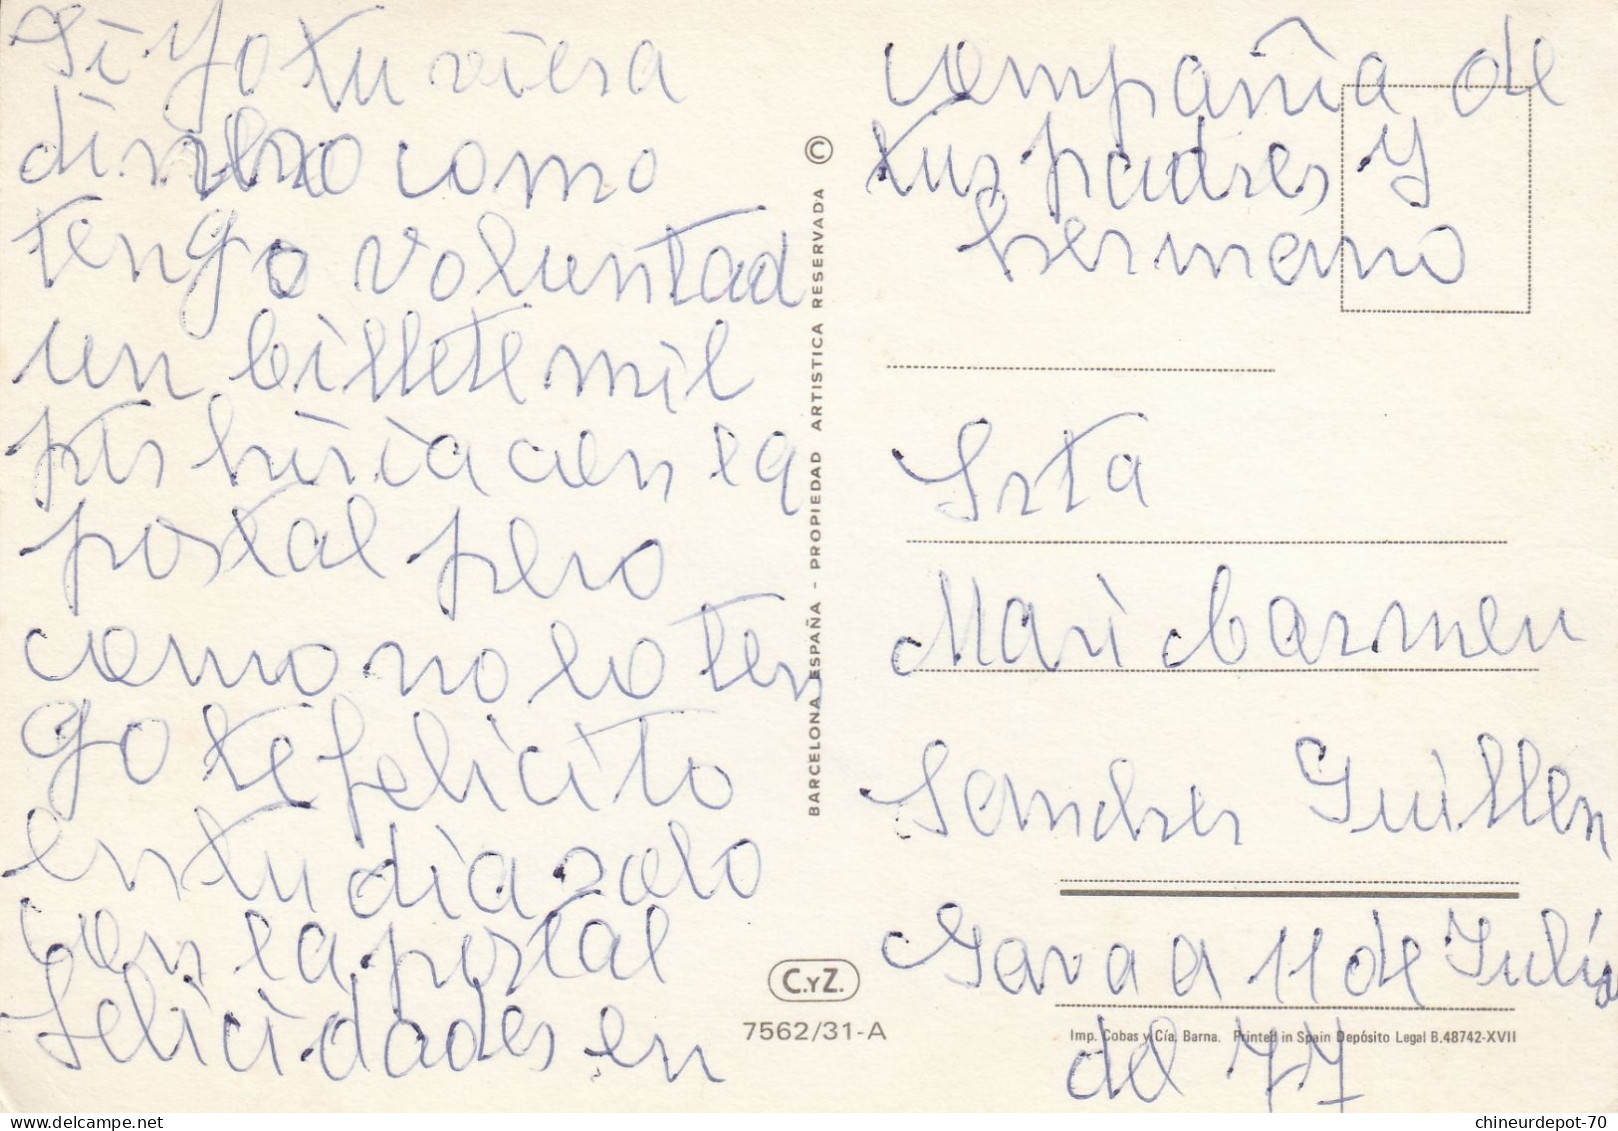 Si Yo tuviera
dinero como
tengo voluntad
un billete mil
pts hiria con la
postal pero
como no lo ten
go te felicito
en tu dia solo
con la postal
felicidades en
compañia de
tus padres y
hermano
Srta
Mari Carmen
Sanches Guillen
Gava a 11 de Julio
del 77
©
BARCELONA ESPAÑA - PROPIEDAD ARTISTICA RESERVADA
C.YZ.
7562/31-A
Imp. Cobas y Cía. Barna. Printed in Spain Depósito Legal B.48742-XVII
chineurdepot-70